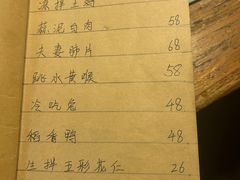 凉拌土鸡
蒜泥白肉 58
夫妻肺片 68
跳水黄喉 58
冷吃兔 48
稻香鸭 48
生拌五彩花仁 26